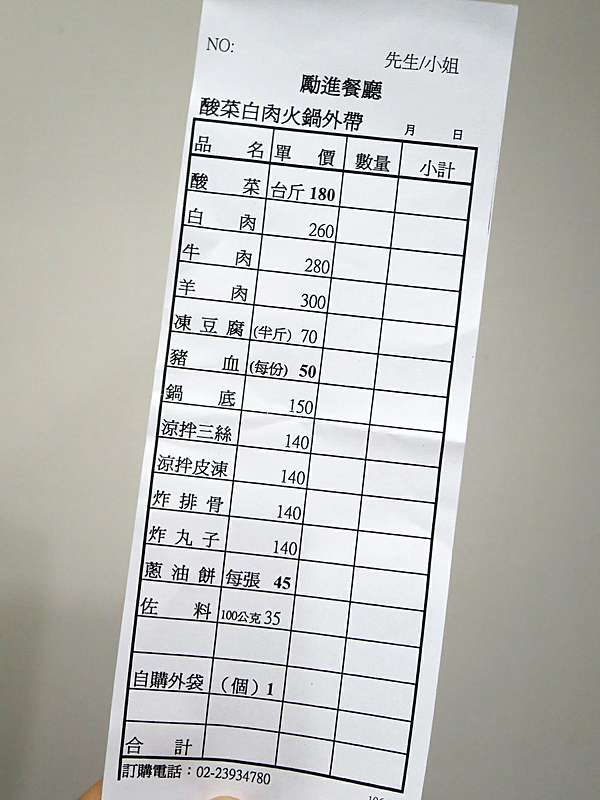 NO:
先生/小姐
勵進餐廳
酸菜白肉火鍋外帶 月 日
品名 單價 數量 小計
酸菜 台斤 180
白肉 260
牛肉 280
羊肉 300
凍豆腐 (半斤) 70
豬血 (每份) 50
鍋底 150
涼拌三絲 140
涼拌皮凍 140
炸排骨 140
炸丸子 140
蔥油餅 每張 45
佐料 100公克 35
自購外袋 (個) 1
合計
訂購電話：02-23934780